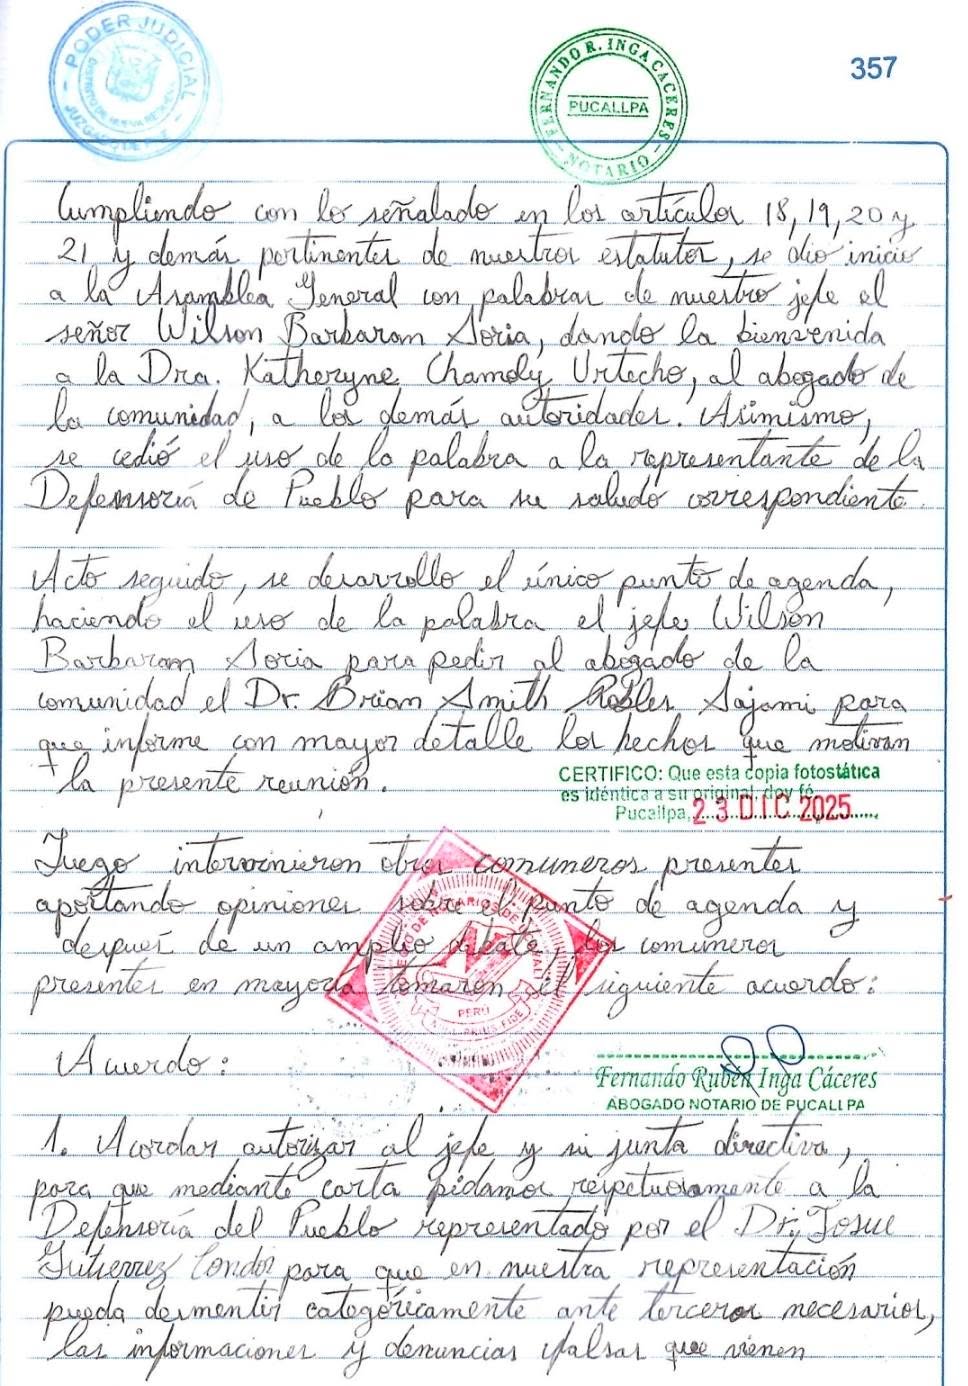 PODER JUDICIAL
FERNANDO R. INGA CACERES
PUCALLPA
NOTARIO
357
Cumpliendo con lo señalado en los artículos 18, 19, 20 y
21 y demás pertinentes de nuestros estatutos, se dio inicio
a la Asamblea General con palabras de nuestro jefe el
señor Wilson Barbaran Soria, dando la bienvenida
a la Dra. Katheryne Chamoly Urtecho, al abogado de
la comunidad, a los demás autoridades. Asimismo,
se cedió el uso de la palabra a la representante de la
Defensoría de Pueblo para su saludo correspondiente.
Acto seguido, se desarrollo el único punto de agenda,
haciendo el uso de la palabra el jefe Wilson
Barbaram Soria para pedir al abogado de la
comunidad el Dr. Brian Smith Robles Sajami para
que informe con mayor detalle los hechos que motivan
la presente reunión.
CERTIFICO: Que esta copia fotostática
es idéntica a su original, doy fé
Pucallpa, 23 DIC 2025
Luego intervinieron otros comuneros presentes
aportando opiniones sobre el punto de agenda y
después de un amplio debate, los comuneros
presentes en mayoría tomaron el siguiente acuerdo:
PERÚ
Acuerdo:
Fernando Rubén Inga Cáceres
ABOGADO NOTARIO DE PUCALLPA
1. Acordar autorizar al jefe y su junta directiva,
para que mediante carta pidamos respetuosamente a la
Defensoría del Pueblo representado por el Dr. Josue
Gutierrez Condor para que en nuestra representación
pueda desmentir categóricamente ante terceros necesarios,
las informaciones y denuncias falsas que vienen